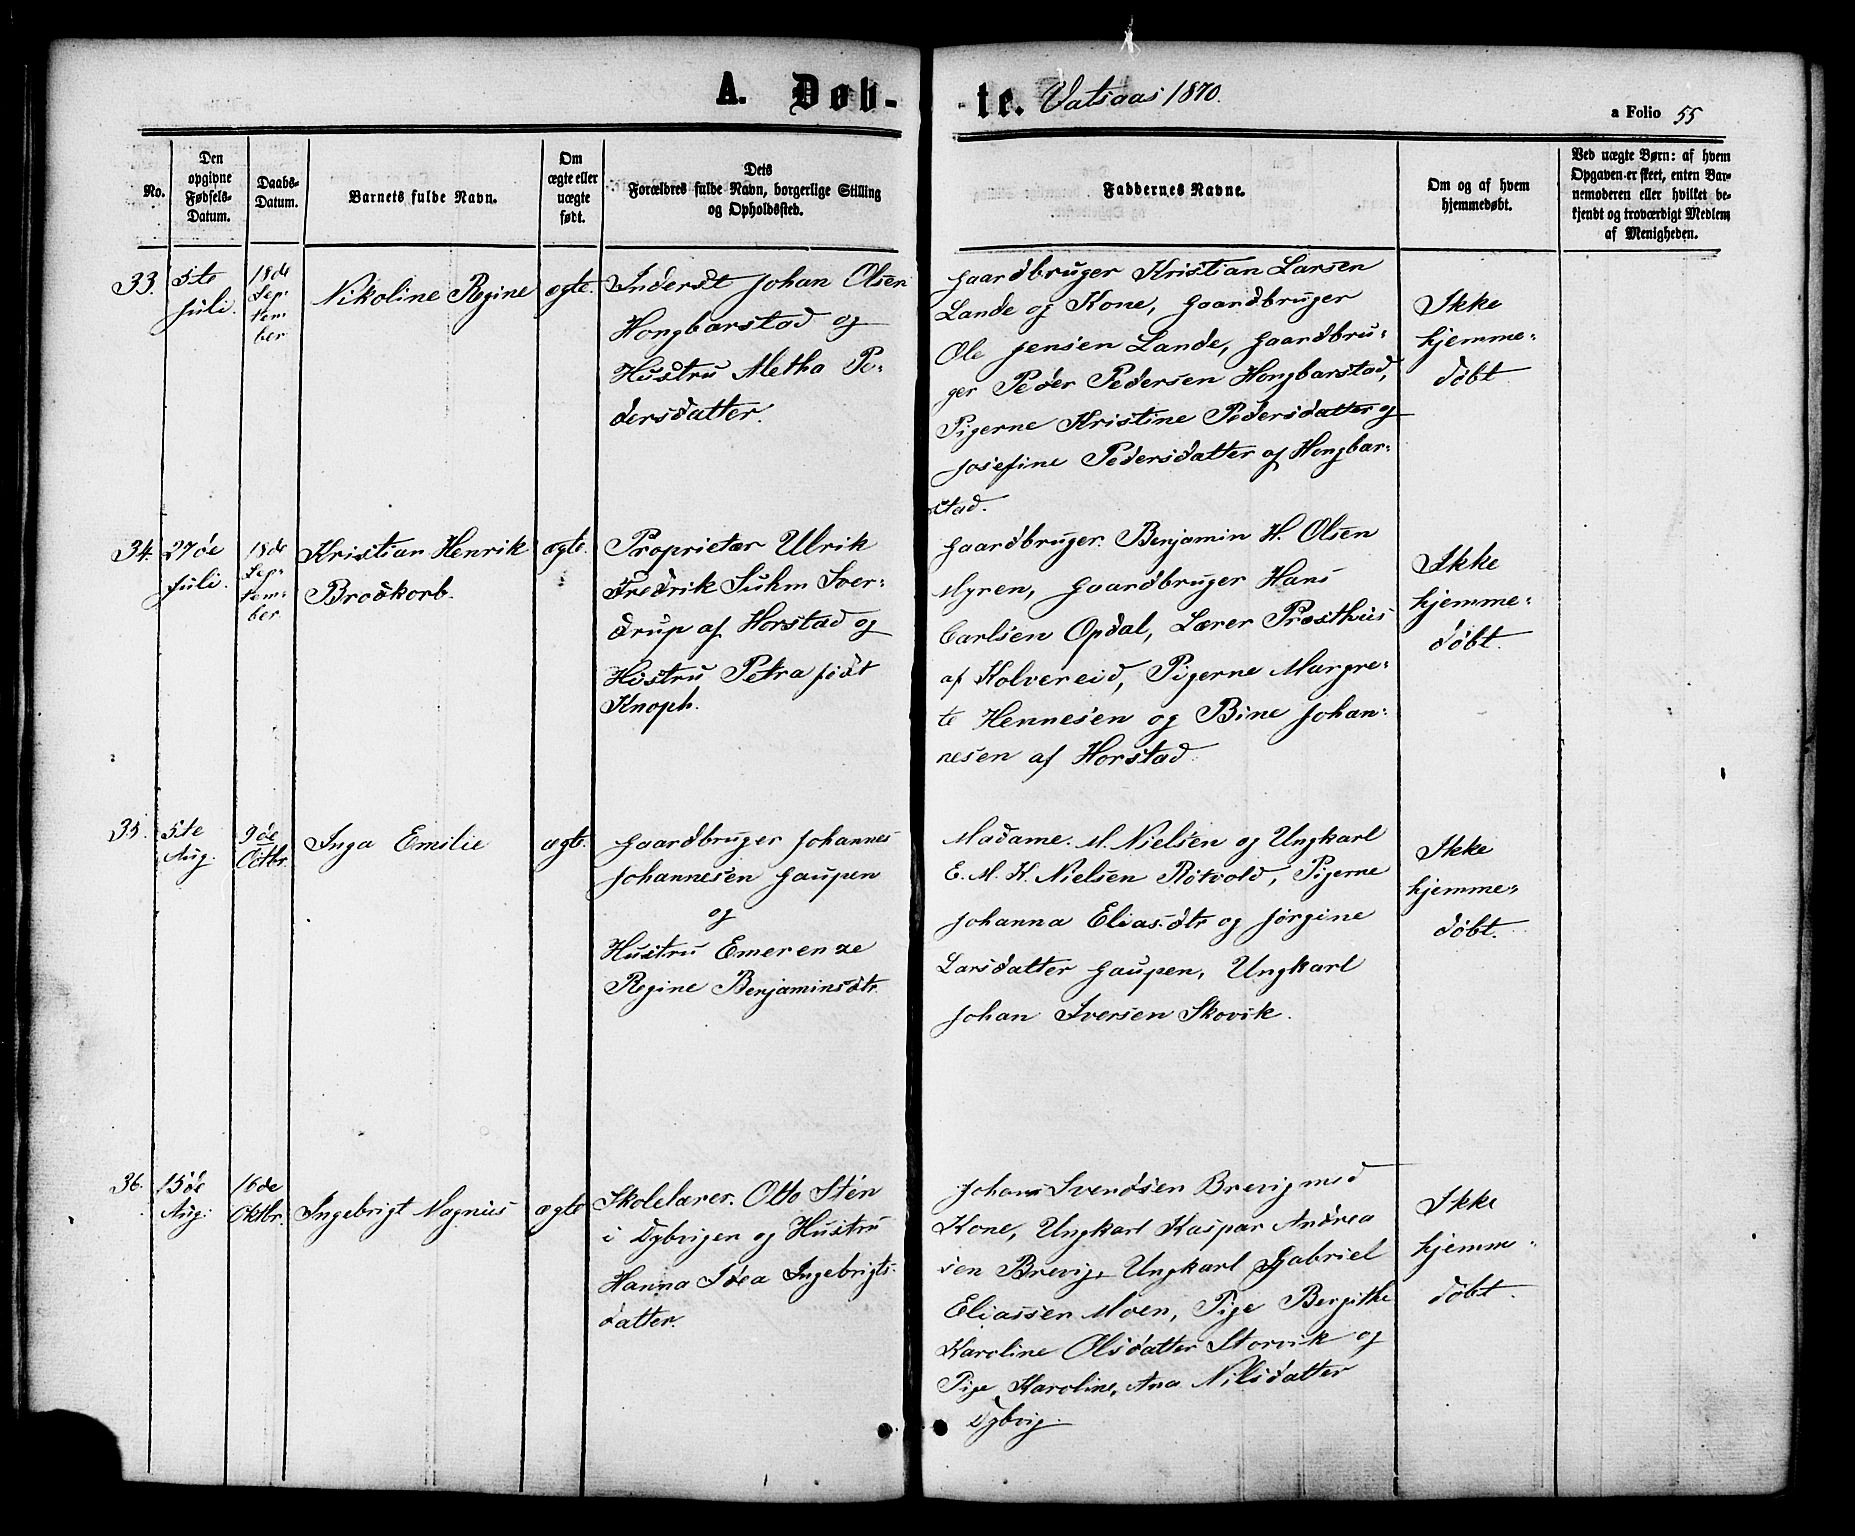 A. Døb- -te. Vatsaas 1870.
a Folio 55
No.
Den
opgivne
Fødsels-
Datum.
Daabs-
Datum.
Barnets fulde Navn.
Om
ægte eller
uægte
født.
Dets
Forældres fulde Navn, borgerlige Stilling
og Opholdssted.
Faddernes Navne.
Om og af hvem
hjemmedøbt.
Ved uægte Børn: af hvem
Opgaven er skeet, enten Bar-
nemoderen eller hvilket be-
kjendt og troværdigt Medlem
af Menigheden.
33.
5te
Juli.
18de
Sep-
tem-
ber
Nikoline Regine
ægte.
Inderst Johan Olsen
Hongbarstad og
Hustru Metha Pe-
dersdatter.
Gaardbruger Kristian Larsen
Lande og Kone, Gaardbruger
Ole Jensen Lande, Gaardbru-
ger Peder Pedersen Hongbarstad,
Pigerne Kristine Pedersdatter og
Josefine Pedersdatter af Hongbar-
stad.
Ikke
hjemme-
døbt.
34.
27de
Juli.
18de
Sep-
tem-
ber.
Kristian Henrik
Brodkorb.
ægte.
Proprietær Ulrik
Fredrik Suhm Sver-
drup af Horstad og
Hustru Petra født
Knoph.
Gaardbruger. Benjamin H. Olsen
Myren, Gaardbruger Hans
Carlsen Opdal, Lærer Præsthus
af Kolvereid, Pigerne Margre-
te Hennesen og Bine Johan-
nesen af Horstad.
Ikke
hjemme-
døbt.
35.
5te
Aug.
9de
Octbr.
Inga Emilie
ægte.
Gaardbruger Johannes
Johannesen Gaupen
og
Hustru Emerenze
Regine Benjaminsdtr.
Madame. M. Nielsen og Ungkarl
E. M. K. Nielsen Røtvold, Pigerne
Johanna Eliasdtr og Jørgine
Larsdatter Gaupen, Ungkarl
Johan Iversen Skovik.
Ikke
hjemme-
døbt.
36.
15de
Aug.
16de
Oktbr.
Ingebrigt Magnus
ægte
Skolelærer. Otto Stén
i Dybvigen og Hustru
Hanna Idea Ingebrigts-
datter.
Johan Svendsen Brevig med
Kone, Ungkarl Kaspar Andrea
sen Brevig, Ungkarl Gabriel
Eliassen Moen, Pige Bergithe
Karoline Olsdatter Storvik og
Pige Karoline, Ana Nilsdatter
Dybvig.
Ikke
hjemme-
døbt.